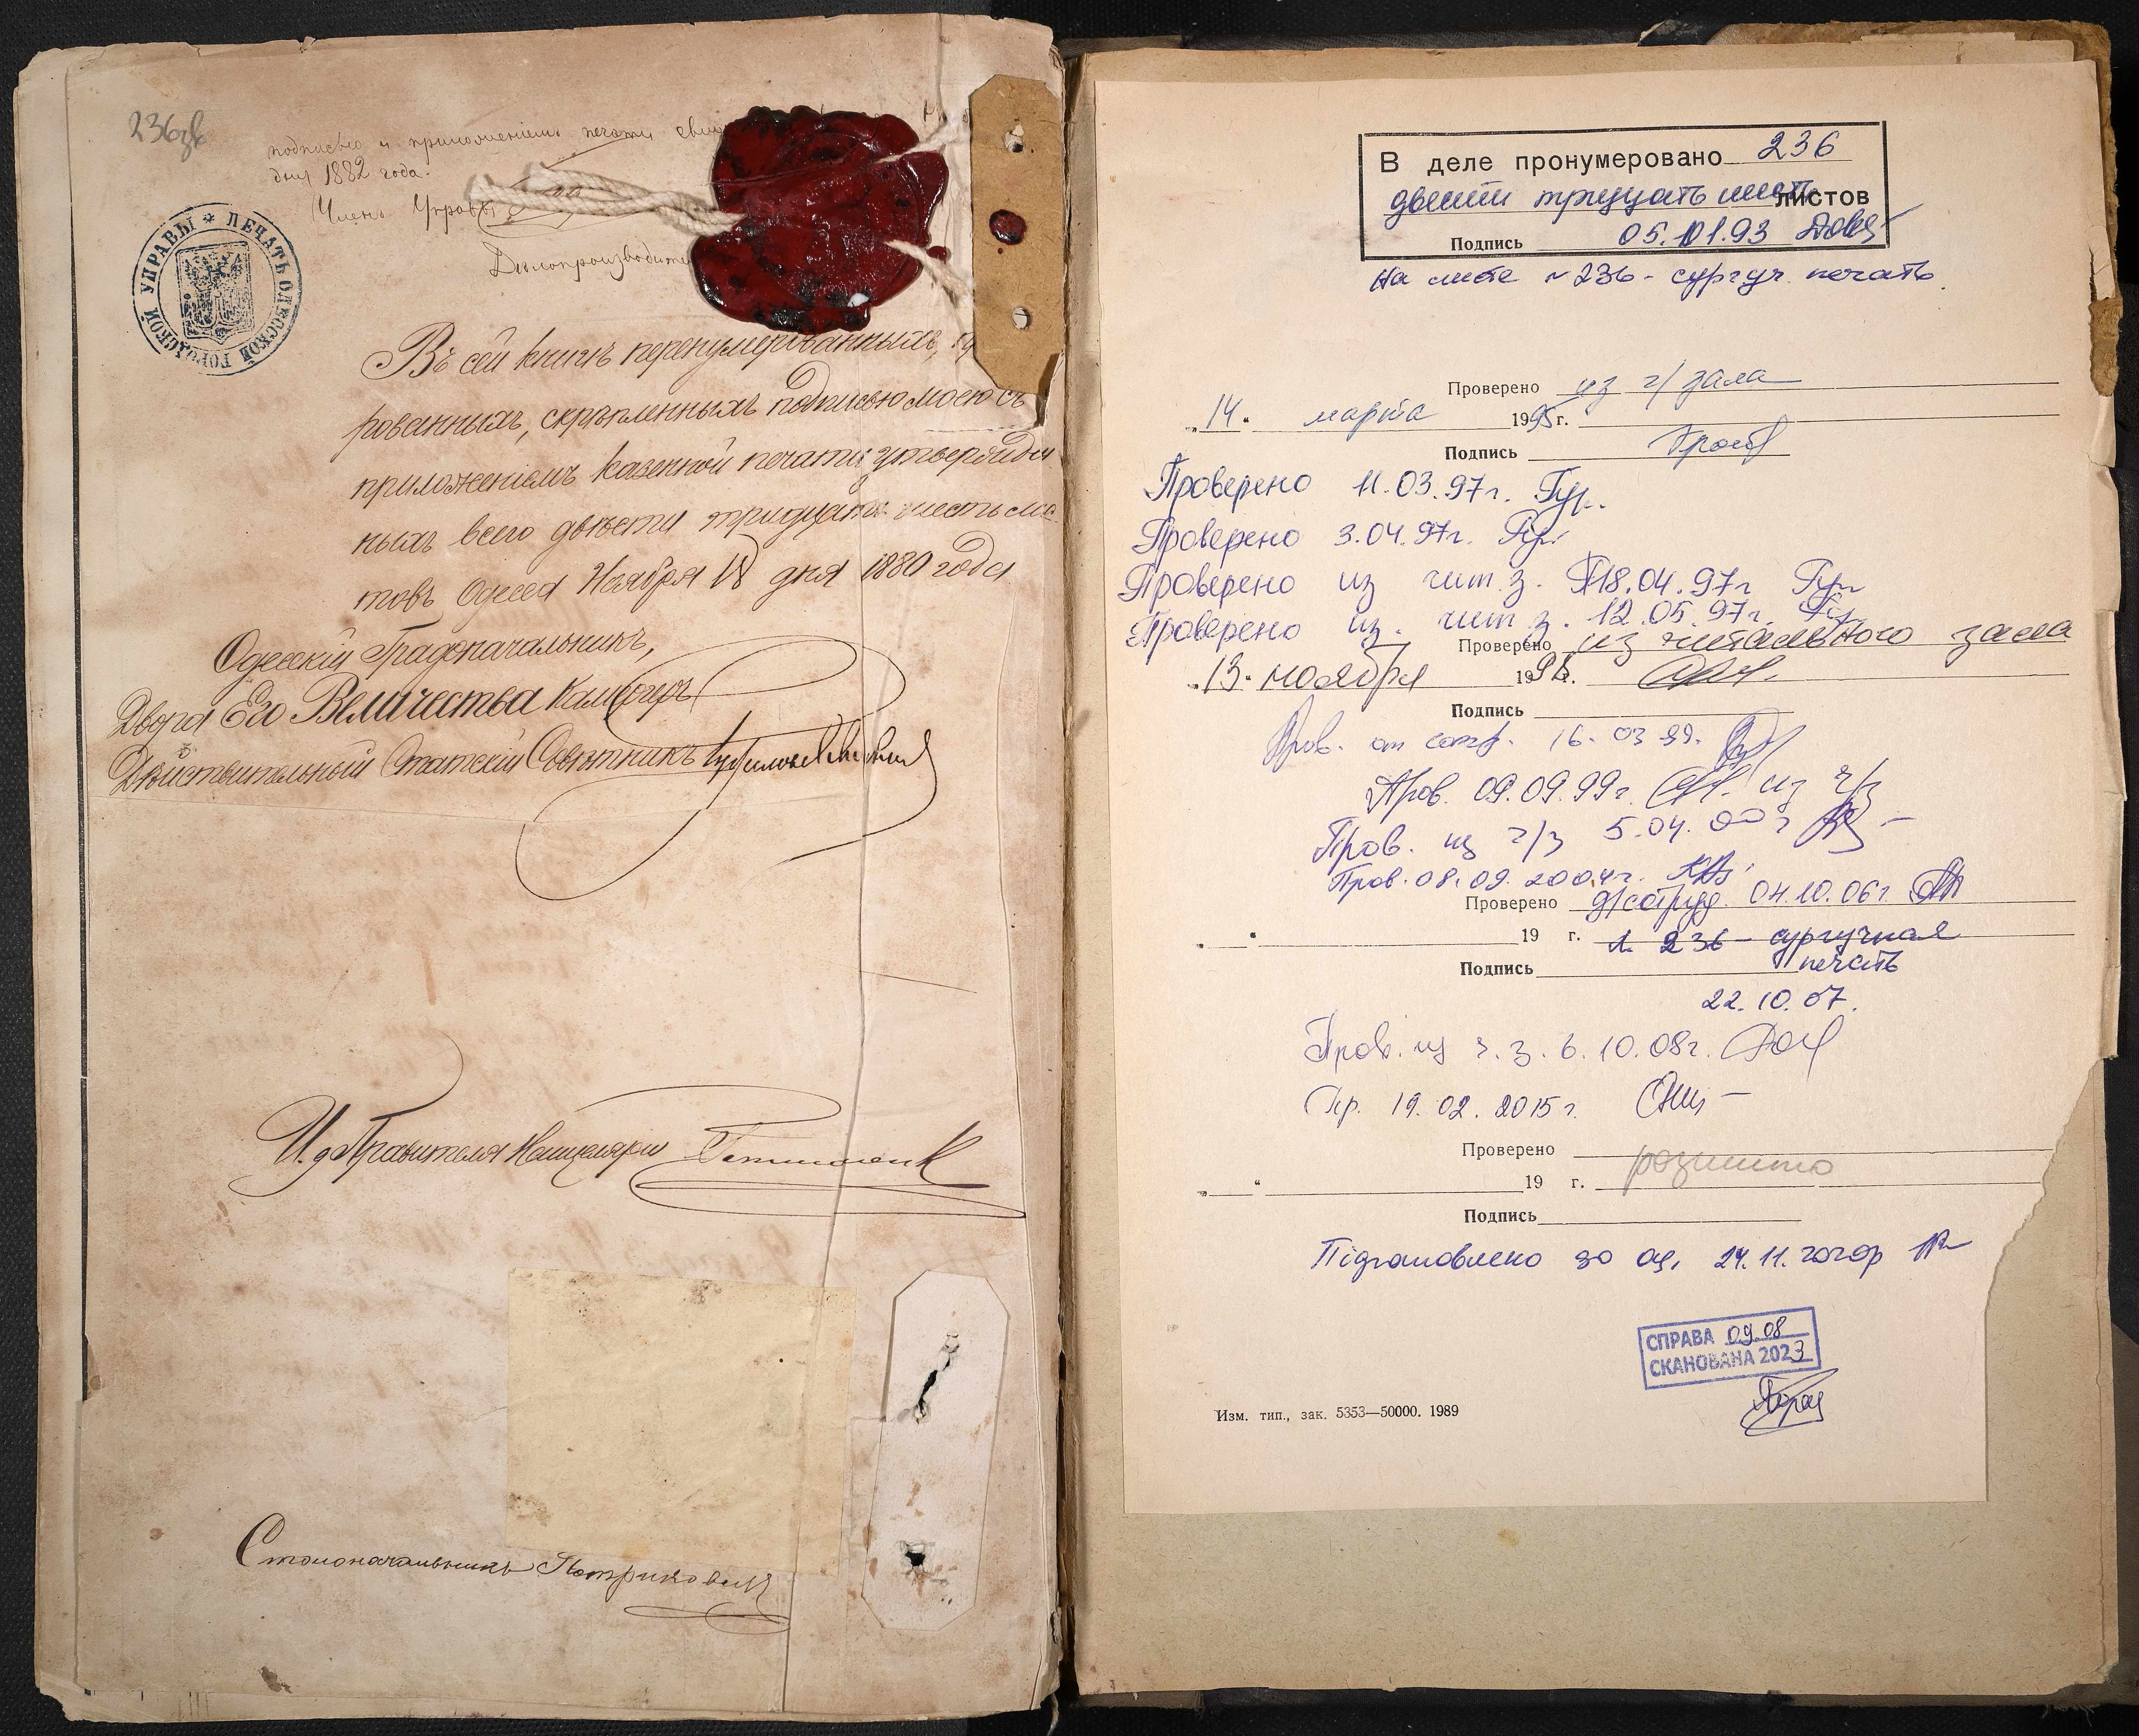 236 зв
подписью и приложеніемъ печати
дня 1882 года.
Членъ Управы
Дѣлопроизводите
ПЕЧАТЬ ОДЕССКОЙ ГОРОДСКОЙ УПРАВЫ
Въ сей книгѣ перенумерованныхъ,
рованныхъ, скрѣпленныхъ подписью моею съ
приложеніемъ казенной печати утвержден
ныхъ всего двѣсти тридцать шесть лис
товъ Одесса Ноября 18 дня 1880 года
Одесскій Градоначальникъ,
Двора Его Величества Камергеръ
Дѣйствительный Статскій Совѣтникъ
И. д. Правителя Канцеляріи
Столоначальникъ
В деле пронумеровано 236
двести тридцать шесть листов
Подпись 05.01.93
На листе № 236 - сургуч. печать.
Проверено из ч/зала
„14“ марта 1995 г.
Подпись
Проверено 11.03.97г. Гур.
Проверено 3.04.97г.
Проверено из чит. з. 18.04.97г
Проверено из. чит. з. 12.05.97г.
Проверено из читального зала
„13“ ноября 1998 г.
Подпись
Пров. от сотр. 16.03.99.
Пров. 09.09.99г. из ч/з
Пров. из ч/з 5.04.00г
Пров. 08.09.2004г.
Проверено д/сотруд. 04.10.06г.
„ “ 19 г. л. 236 - сургучная
Подпись печать
22.10.07.
Пров. из ч.з. 6.10.08г.
Пр. 19.02.2015г.
Проверено
„ “ 19 г. розшито
Подпись
Підготовлено до оц. 24.11.2020р
СПРАВА 09.08
СКАНОВАНА 2023
Изм. тип., зак. 5353—50000. 1989